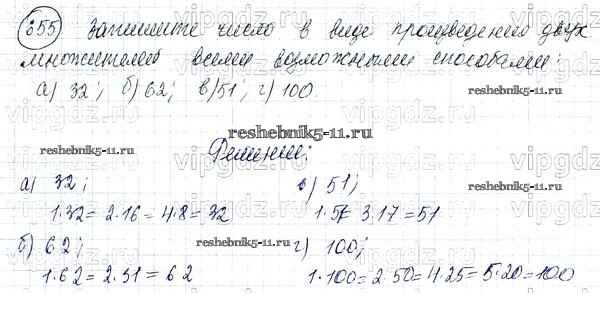 655 Запишите число в виде произведения двух
множителей всеми возможными способами:
а) 32; б) 62; в) 51; г) 100
reshebnik5-11.ru
reshebnik5-11.ru
Решение:
reshebnik5-11.ru
а) 32;
1·32 = 2·16 = 4·8 = 32
в) 51;
reshebnik5-11.ru
1·51= 3·17 = 51
б) 62;
reshebnik5-11.ru
1·62 = 2·31 = 62
г) 100;
reshebnik5-11.ru
1·100 = 2·50 = 4·25 = 5·20 = 100
vipgdz.ru